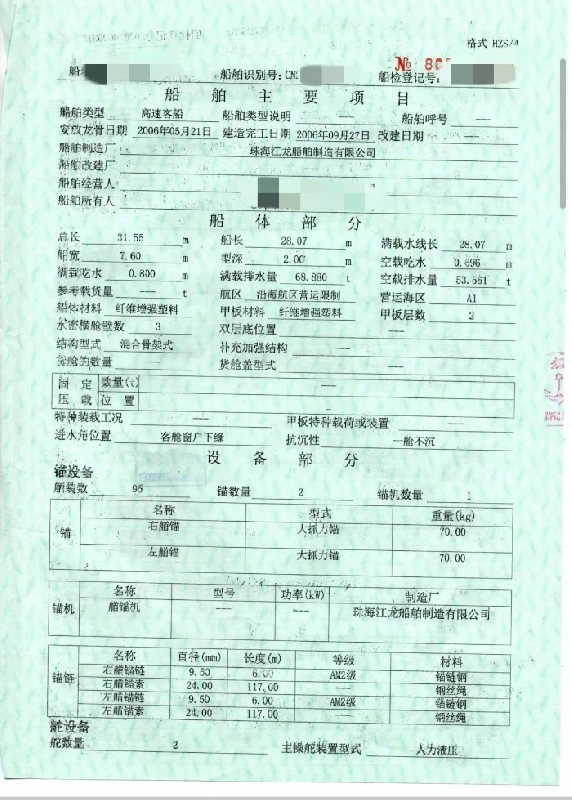 格式 HZS/4
№ 80
船舶识别号：CN 船检登记号：
船舶主要项目
船舶类型 高速客船 船舶类型说明 --- 船舶呼号 ---
安放龙骨日期 2006年05月21日 建造完工日期 2006年09月27日 改建日期 ---
船舶制造厂 珠海江龙船舶制造有限公司
船舶改建厂
船舶经营人
船舶所有人
船体部分
总长 31.55 m 船长 28.07 m 满载水线长 28.07 m
船宽 7.60 m 型深 2.00 m 空载吃水 0.696 m
满载吃水 0.800 m 满载排水量 68.880 t 空载排水量 53.561 t
参考载货量 --- t 航区 沿海航区营运限制 营运海区 A1
船体材料 纤维增强塑料 甲板材料 纤维增强塑料 甲板层数 2
水密横舱壁数 3 双层底位置 ---
结构型式 混合骨架式 补充加强结构 ---
货舱的数量 --- 货舱盖型式 ---
固定 数量(t) ---
压载 位置
特种装载工况 --- 甲板特种载荷或装置 ---
进水角位置 客舱窗户下缘 抗沉性 一舱不沉
设备部分
锚设备
舾装数 95 锚数量 2 锚机数量 1
锚 名称 型式 重量(kg)
右艏锚 大抓力锚 70.00
左艏锚 大抓力锚 70.00
锚机 名称 型号 功率(kW) 制造厂
艏锚机 --- --- 珠海江龙船舶制造有限公司
锚链 名称 直径(mm) 长度(m) 等级 材料
右艏锚链 9.50 6.00 AM2级 锚链钢
右艏锚索 24.00 117.00 钢丝绳
左艏锚链 9.50 6.00 AM2级 锚链钢
左艏锚索 24.00 117.00 钢丝绳
舵设备
舵数量 2 主操舵装置型式 人力液压